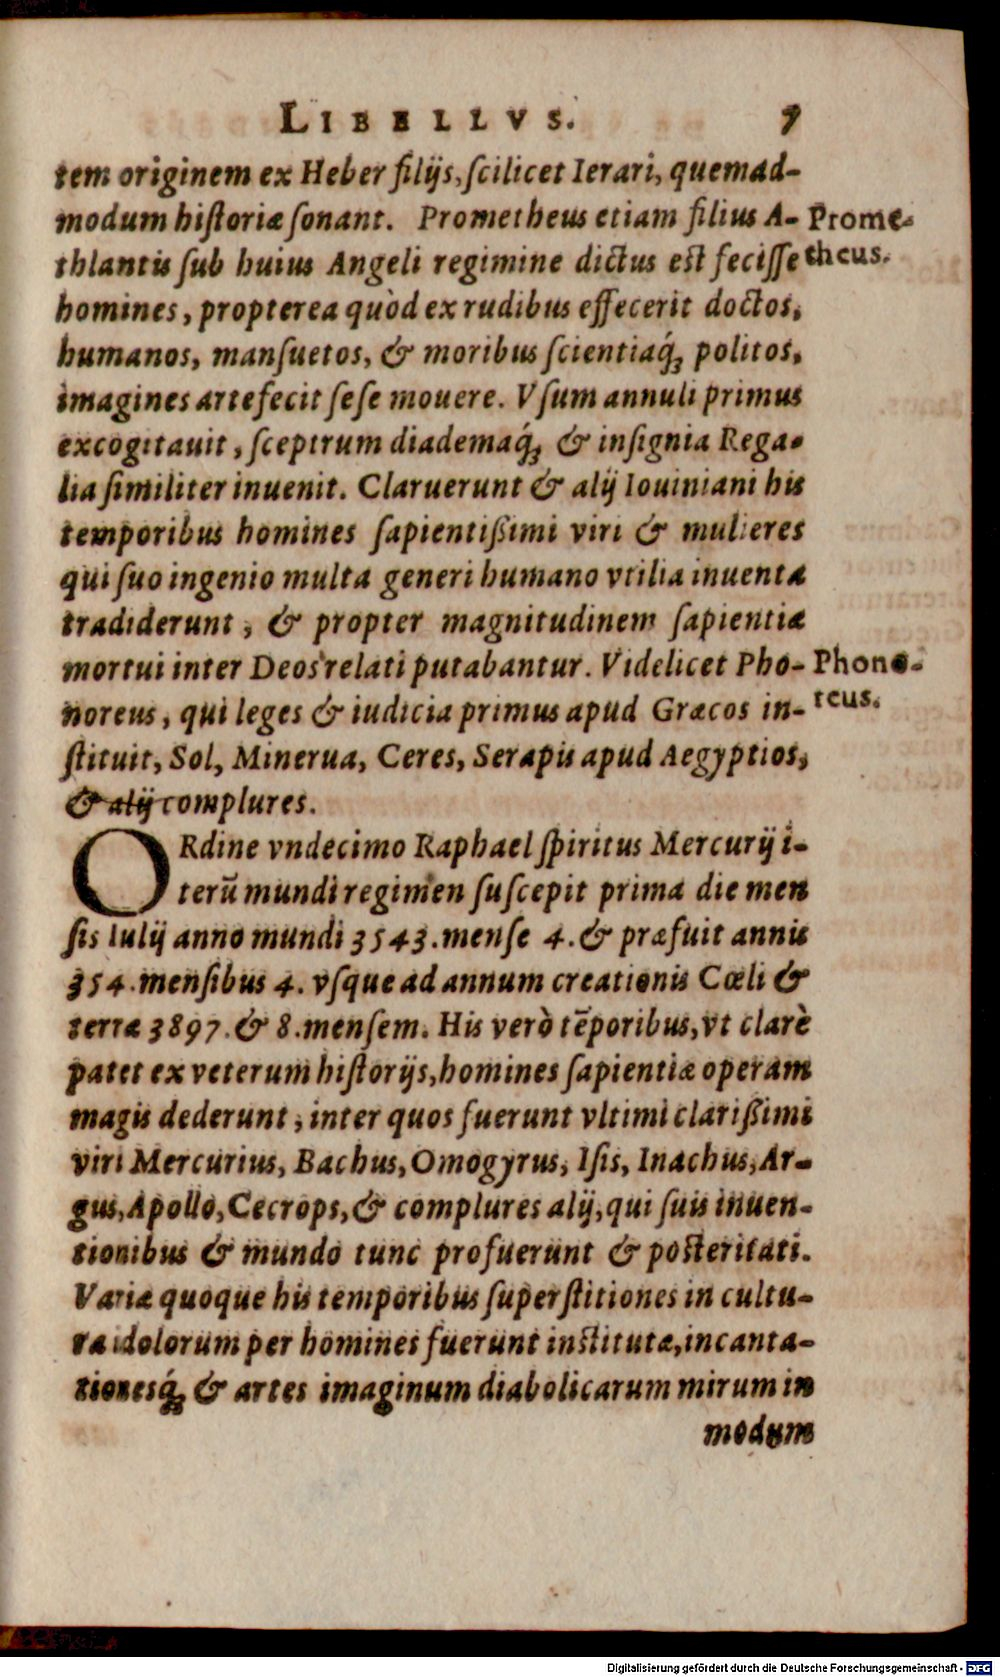 LIBELLVS. 7
tem originem ex Heber filijs, scilicet Ierari, quemad-
modum historiæ sonant. Prometheus etiam filius A-
thlantis sub huius Angeli regimine dictus est fecisse
Prome-
theus.
homines, propterea quòd ex rudibus effecerit doctos,
humanos, mansuetos, & moribus scientiaq́ue politos,
imagines arte fecit sese mouere. Vsum annuli primus
excogitauit, sceptrum diademaq́ue, & insignia Rega-
lia similiter inuenit. Claruerunt & alij Iouiniani his
temporibus homines sapientißimi viri & mulieres
qui suo ingenio multa generi humano vtilia inuenta
tradiderunt, & propter magnitudinem sapientiæ
mortui inter Deos relati putabantur. Videlicet Pho-
noreus, qui leges & iudicia primus apud Græcos in-
Phono-
reus.
stituit, Sol, Minerua, Ceres, Serapis apud Aegyptios,
& alij complures.
ORdine vndecimo Raphael spiritus Mercurij i-
terū mundi regimen suscepit prima die men
sis Iulij anno mundi 3543. mense 4. & præfuit annis
354. mensibus 4. vsque ad annum creationis Cœli &
terræ 3897. & 8. mensem. His verò tēporibus, vt clarè
patet ex veterum historijs, homines sapientiæ operam
magis dederunt, inter quos fuerunt vltimi clarißimi
viri Mercurius, Bachus, Omogyrus, Isis, Inachus, Ar-
gus, Apollo, Cecrops, & complures alij, qui suis inuen-
tionibus & mundo tunc profuerunt & posteritati.
Variæ quoque his temporibus superstitiones in cultu-
ra idolorum per homines fuerunt institutæ, incanta-
tionesq́ue & artes imaginum diabolicarum mirum in
modum
Digitalisierung gefördert durch die Deutsche Forschungsgemeinschaft - DFG